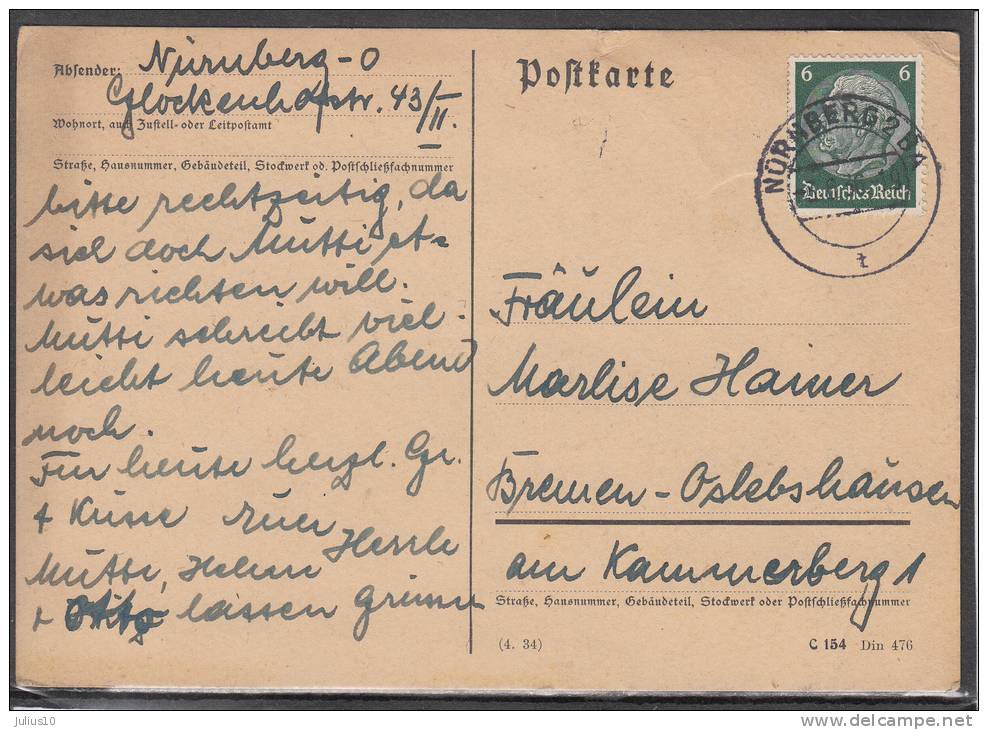 Absender: Nürnberg-O
Glockenhofstr. 43/II.
Wohnort, auch Zustell- oder Leitpostamt
Straße, Hausnummer, Gebäudeteil, Stockwerk od. Postschließfachnummer
bitte rechtzeitig, da
sich doch Mutti et-
was richten will.
Mutti schreibt viel-
leicht heute Abend
noch.
Für heute herzl. Gr.
+ Küsse
Mutti,
+ lassen grüssen
Postkarte
6 6
NÜRNBERG 2
Deutsches Reich
Fräulein
Marlise Hainer
Bremen-Oslebshausen
am Kammerberg 1
Straße, Hausnummer, Gebäudeteil, Stockwerk oder Postschließfachnummer
(4. 34)
C 154 Din 476
julius10
www.delcampe.net